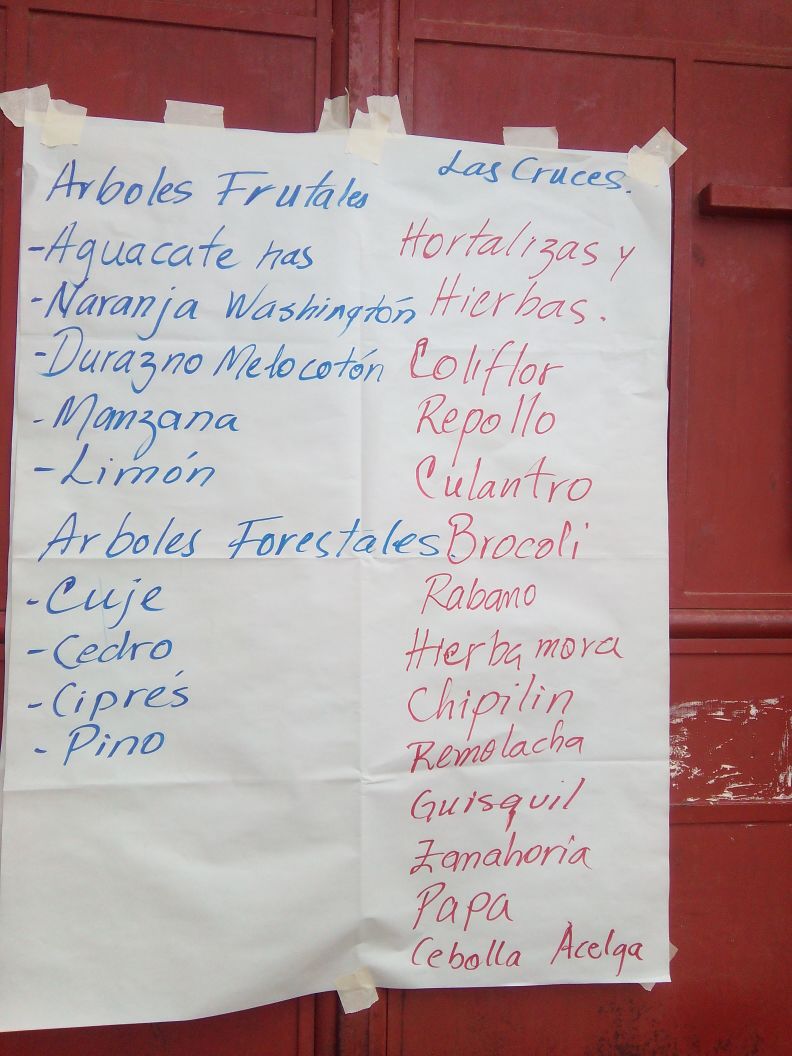 Arboles Frutales
- Aguacate has
- Naranja Washingtón
- Durazno Melocotón
- Manzana
- Limón
Arboles Forestales
- Cuje
- Cedro
- Ciprés
- Pino
Las Cruces.
Hortalizas y
Hierbas.
Coliflor
Repollo
Culantro
Brocoli
Rabano
Hierba mora
Chipilin
Remolacha
Guisquil
Zanahoria
Papa
Cebolla Acelga